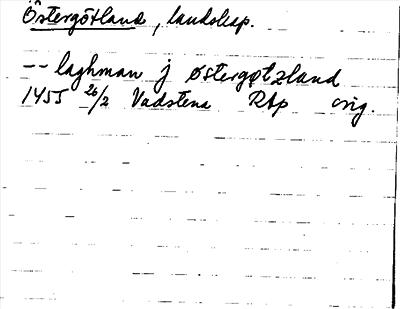 Östergötland, landskap.
-- laghman j østergøtzland
1455 26/2 Vadstena RAp orig.